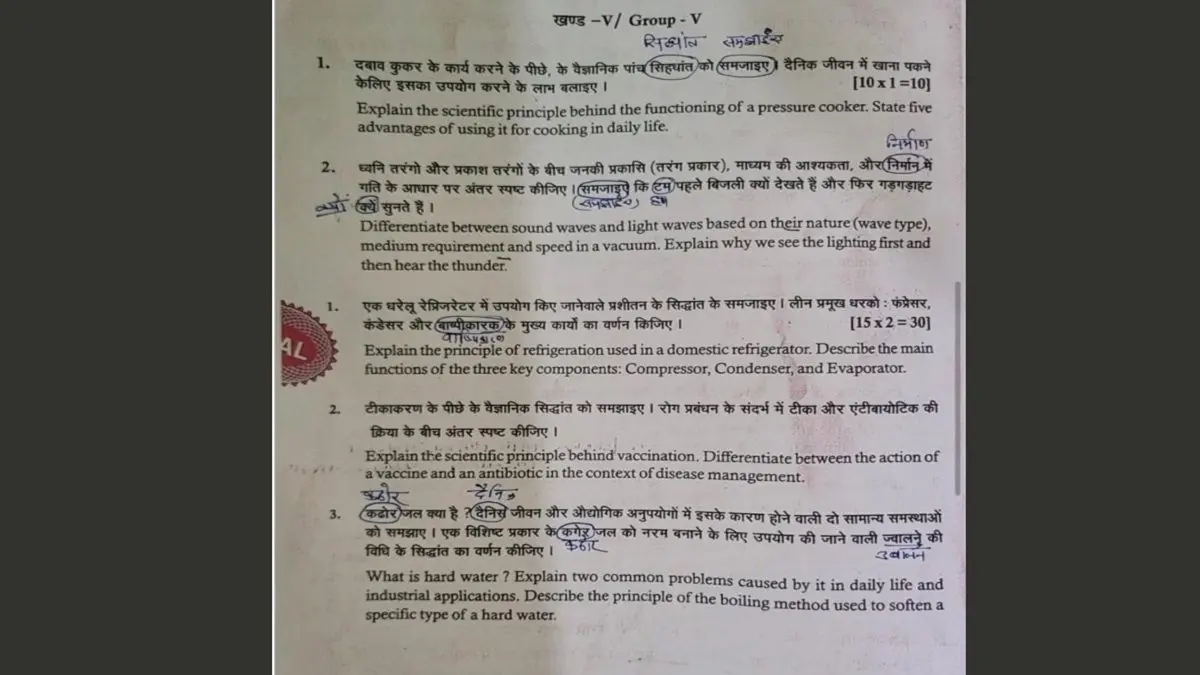 खण्ड –V/ Group - V
सिद्धांत समझाईए
1. दबाव कुकर के कार्य करने के पीछे, के वैज्ञानिक पांच सिहधांत को समजाइए। दैनिक जीवन में खाना पकने
केलिए इसका उपयोग करने के लाभ बलाइए। [10 x 1 =10]
Explain the scientific principle behind the functioning of a pressure cooker. State five
advantages of using it for cooking in daily life.
निर्माण
2. ध्वनि तरंगो और प्रकाश तरंगों के बीच जनकी प्रकासि (तरंग प्रकार), माध्यम की आश्यकता, और निर्मान में
गति के आधार पर अंतर स्पष्ट कीजिए। समजाइऐ कि टम पहले बिजली क्यों देखते हैं और फिर गड़गड़ाहट
क्यों क्यें सुनते हैं। समझाइए हम
Differentiate between sound waves and light waves based on their nature (wave type),
medium requirement and speed in a vacuum. Explain why we see the lighting first and
then hear the thunder.
1. एक धरेलू रेप्रिजरेटर में उपयोग किए जानेवाले प्रशीतन के सिद्धांत के समजाइए। लीन प्रमूख धरको : फंप्रेसर,
कंडेसर और बाष्पीक्रारक के मुख्य कार्यो का वर्णन किजिए। [15 x 2 = 30]
AL
Explain the principle of refrigeration used in a domestic refrigerator. Describe the main
functions of the three key components: Compressor, Condenser, and Evaporator.
2. टीकाकरण के पीछे के वैज्ञानिक सिद्धांत को समझाइए। रोग प्रबंधन के संदर्भ में टीका और एंटीबायोटिक की
क्रिया के बीच अंतर स्पष्ट कीजिए।
Explain the scientific principle behind vaccination. Differentiate between the action of
a vaccine and an antibiotic in the context of disease management.
कठोर दैनिक
3. कढोर जल क्या है ? दैनिस जीवन और औद्योगिक अनुपयोगों में इसके कारण होने वाली दो सामान्य समस्थाओं
को समझाए। एक विशिष्ट प्रकार के कगेर जल को नरम बनाने के लिए उपयोग की जाने वाली ज्वालने की
विधि के सिद्धांत का वर्णन कीजिए। कठोर उबालन
What is hard water ? Explain two common problems caused by it in daily life and
industrial applications. Describe the principle of the boiling method used to soften a
specific type of a hard water.